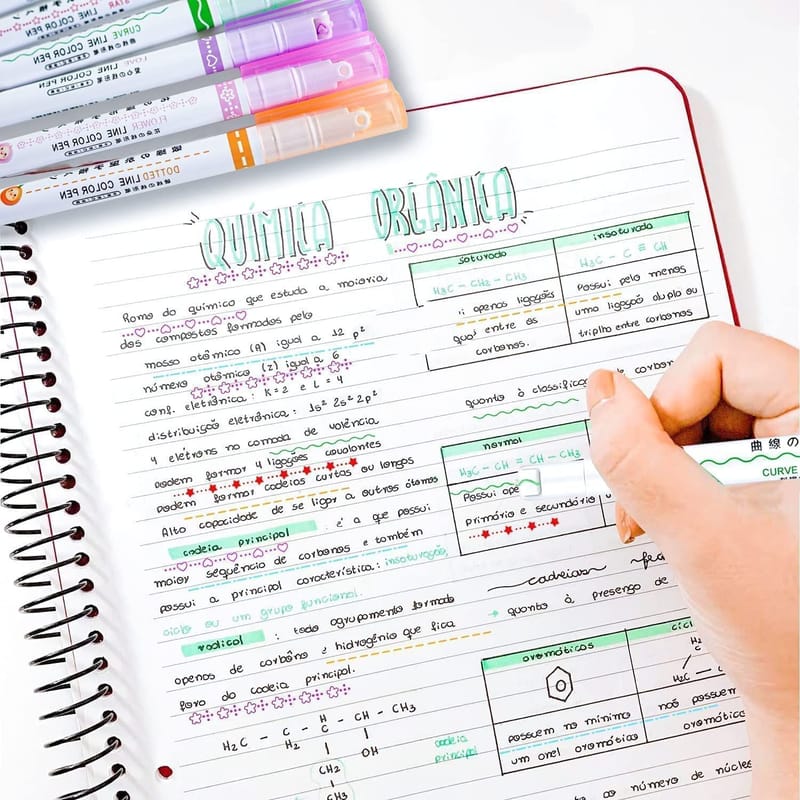 STAR
CURVE LINE COLOR PEN
LOVE
LINE COLOR PEN
FLOWER LINE COLOR PEN
DOTTED LINE COLOR PEN
QUÍMICA ORGÂNICA
Ramo da química que estuda a maioria
dos compostos formados pelo
massa atômica (A) igual a 12 p²
número atômico (z) igual a 6
conf. eletrônica: K = 2 e L = 4
distribuição eletrônica: 1s² 2s² 2p²
4 elétrons na camada de valência
podem formar 4 ligações covalentes
podem formar cadeias curtas ou longas
Alta capacidade de se ligar a outros átomos
cadeia principal : é a que possui
maior sequência de carbonos e também
possui a principal característica: insaturação,
ciclo ou um grupo funcional.
radical : todo agrupamento formado
apenas de carbono e hidrogênio que fica
fora da cadeia principal.
H₂C - C - H C - CH - CH₃
H₂
OH
CH₂
CH₃
cadeia
principal
saturada
insaturada
H₃C - CH₂ - CH₃
H₃C - C ≡ CH
apenas ligações
entre os
carbonos.
Possui pelo menos
uma ligação dupla ou
tripla entre carbonos
quanto à
normal
H₃C - CH = CH - CH₃
Possui
primário e secundário
cadeias
→ quanto à presença de
aromáticos
H₂
H₂C
possuem no mínimo
um anel aromático
não possuem
aromático
ao número de
曲線の
CURVE